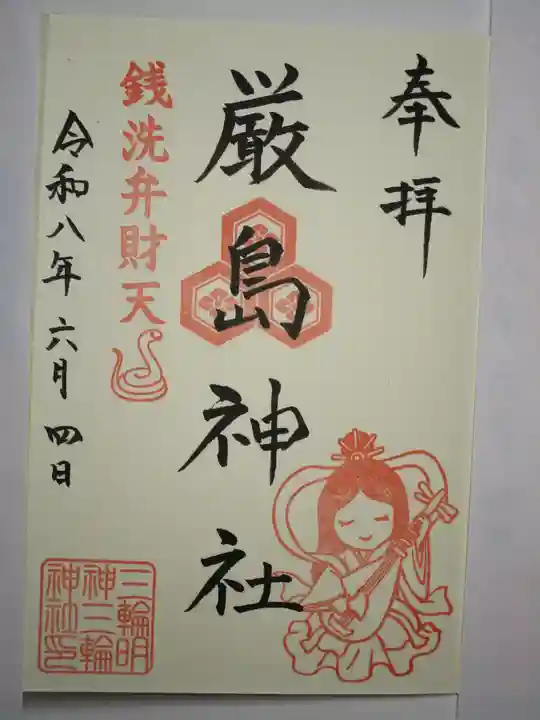 奉拝
厳島神社
銭洗弁財天
令和八年六月四日
三輪明
神三輪
神社印